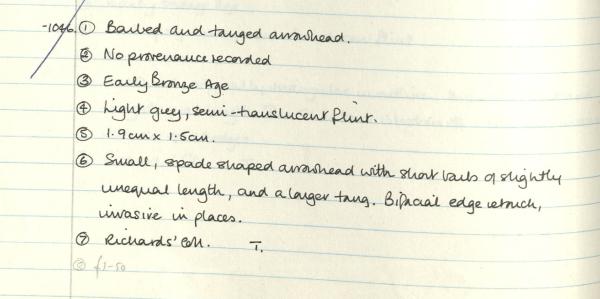 -1046. ① Barbed and tanged arrowhead.
② No provenance recorded
③ Early Bronze Age
④ Light grey, semi-translucent flint.
⑤ 1.9cm x 1.5cm.
⑥ Small, spade shaped arrowhead with short barbs of slightly
unequal length, and a larger tang. Bifacial edge retouch,
invasive in places.
⑦ Richards' Coll. T.
⑧ £1-50